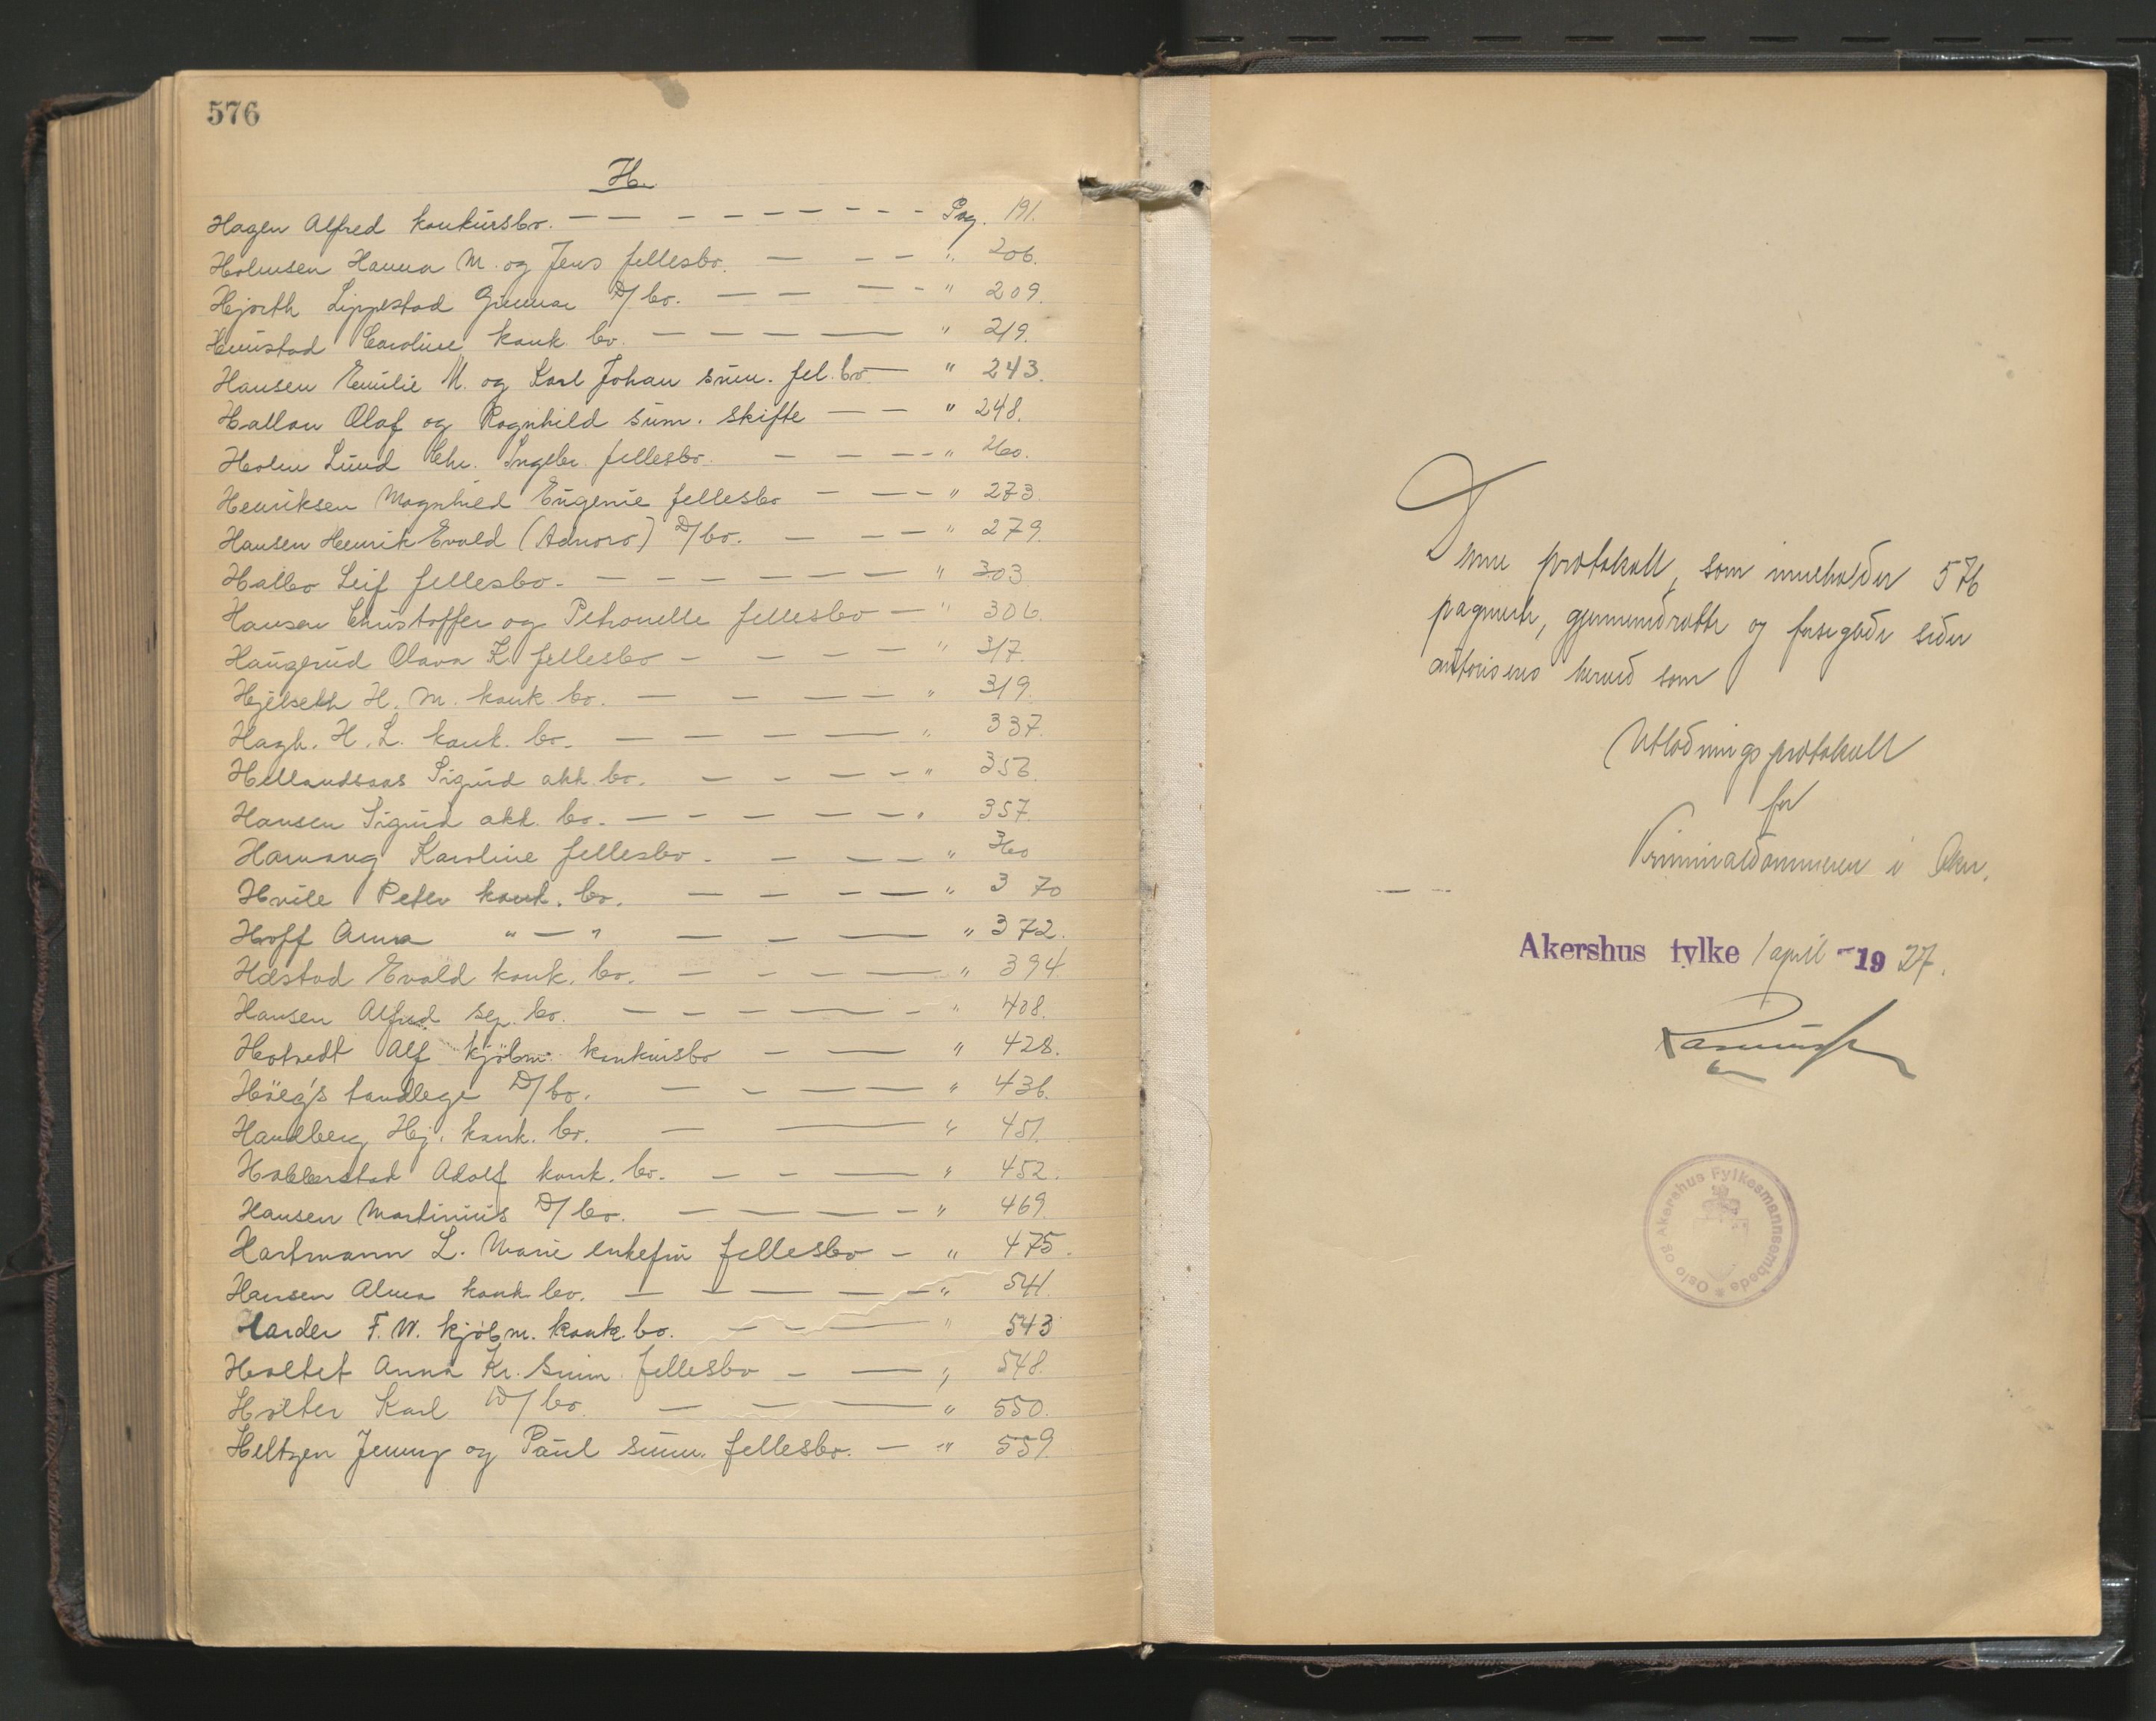 576
H.
Hagen Alfred konkursbo. — — — — — — — — — Pag. 191.
Holmsen Hanna M. og Jens fellesbo. — — — " 206.
Hjorth Lippestad Gunnar D/bo. — — — — " 209.
Caroline konk. bo. — — — — " 219.
Hansen Emilie M. og Karl Johan sum. fel. bo — " 243.
Hallan Olaf og Ragnhild sum. skifte — — " 248.
Holm Lund Chr. Ingebr. fellesbo. — — — — " 260.
Henriksen Magnhild Eugenie fellesbo — — — " 273.
Hansen Henrik Evald (Adnoro) D/bo. — — — " 279.
Halbo Leif fellesbo. — — — — — — — " 303
Hansen Christoffer og Petronelle fellesbo — " 306.
Haugerud Olava K. fellesbo — — — — — " 317.
Hjelseth H. M. konk. bo. — — — — — " 319.
Hagb. H. L. konk. bo. — — — — — " 337.
Hellandsaas Sigurd akk. bo. — — — — — " 356.
Hansen Sigurd akk. bo. — — — — — — " 357.
Hamang Karoline fellesbo. — — — " 360
Hvile Peter konk. bo. — — — — " 370
Hoff Anna " — " — — — — " 372.
Hæstad Evald konk. bo. — — — — " 394
Hansen Alfred sep. bo. — — — — — — " 408.
Hotvedt Alf kjøbm. konkursbo — — " 428.
Høeg's tandlege D/bo. — — — — " 436.
Handberg Hj. konk. bo. — — " 451.
Adolf konk. bo. — — — " 452.
Hansen Martinius D/bo. — — — — — " 469.
Hartmann L. Marie enkefru fellesbo — " 475.
Hansen Alma konk. bo. — — — — — " 541.
Harder F. W. kjøbm. konk. bo. — — — " 543
Holtet Anna Kr. sum. fellesbo — — " 548.
Holter Karl D/bo. — — — " 550.
Heltzen Jenny og Paul sum. fellesbo. — " 559.
Denne protokoll, som inneholder 576
paginerte, gjennemdratte og forseglede sider
autoriseres herved som
Utlodningsprotokoll
for
Kriminaldommeren i Aker.
Akershus fylke 1 april 1927.
Oslo og Akershus Fylkesmannsembede